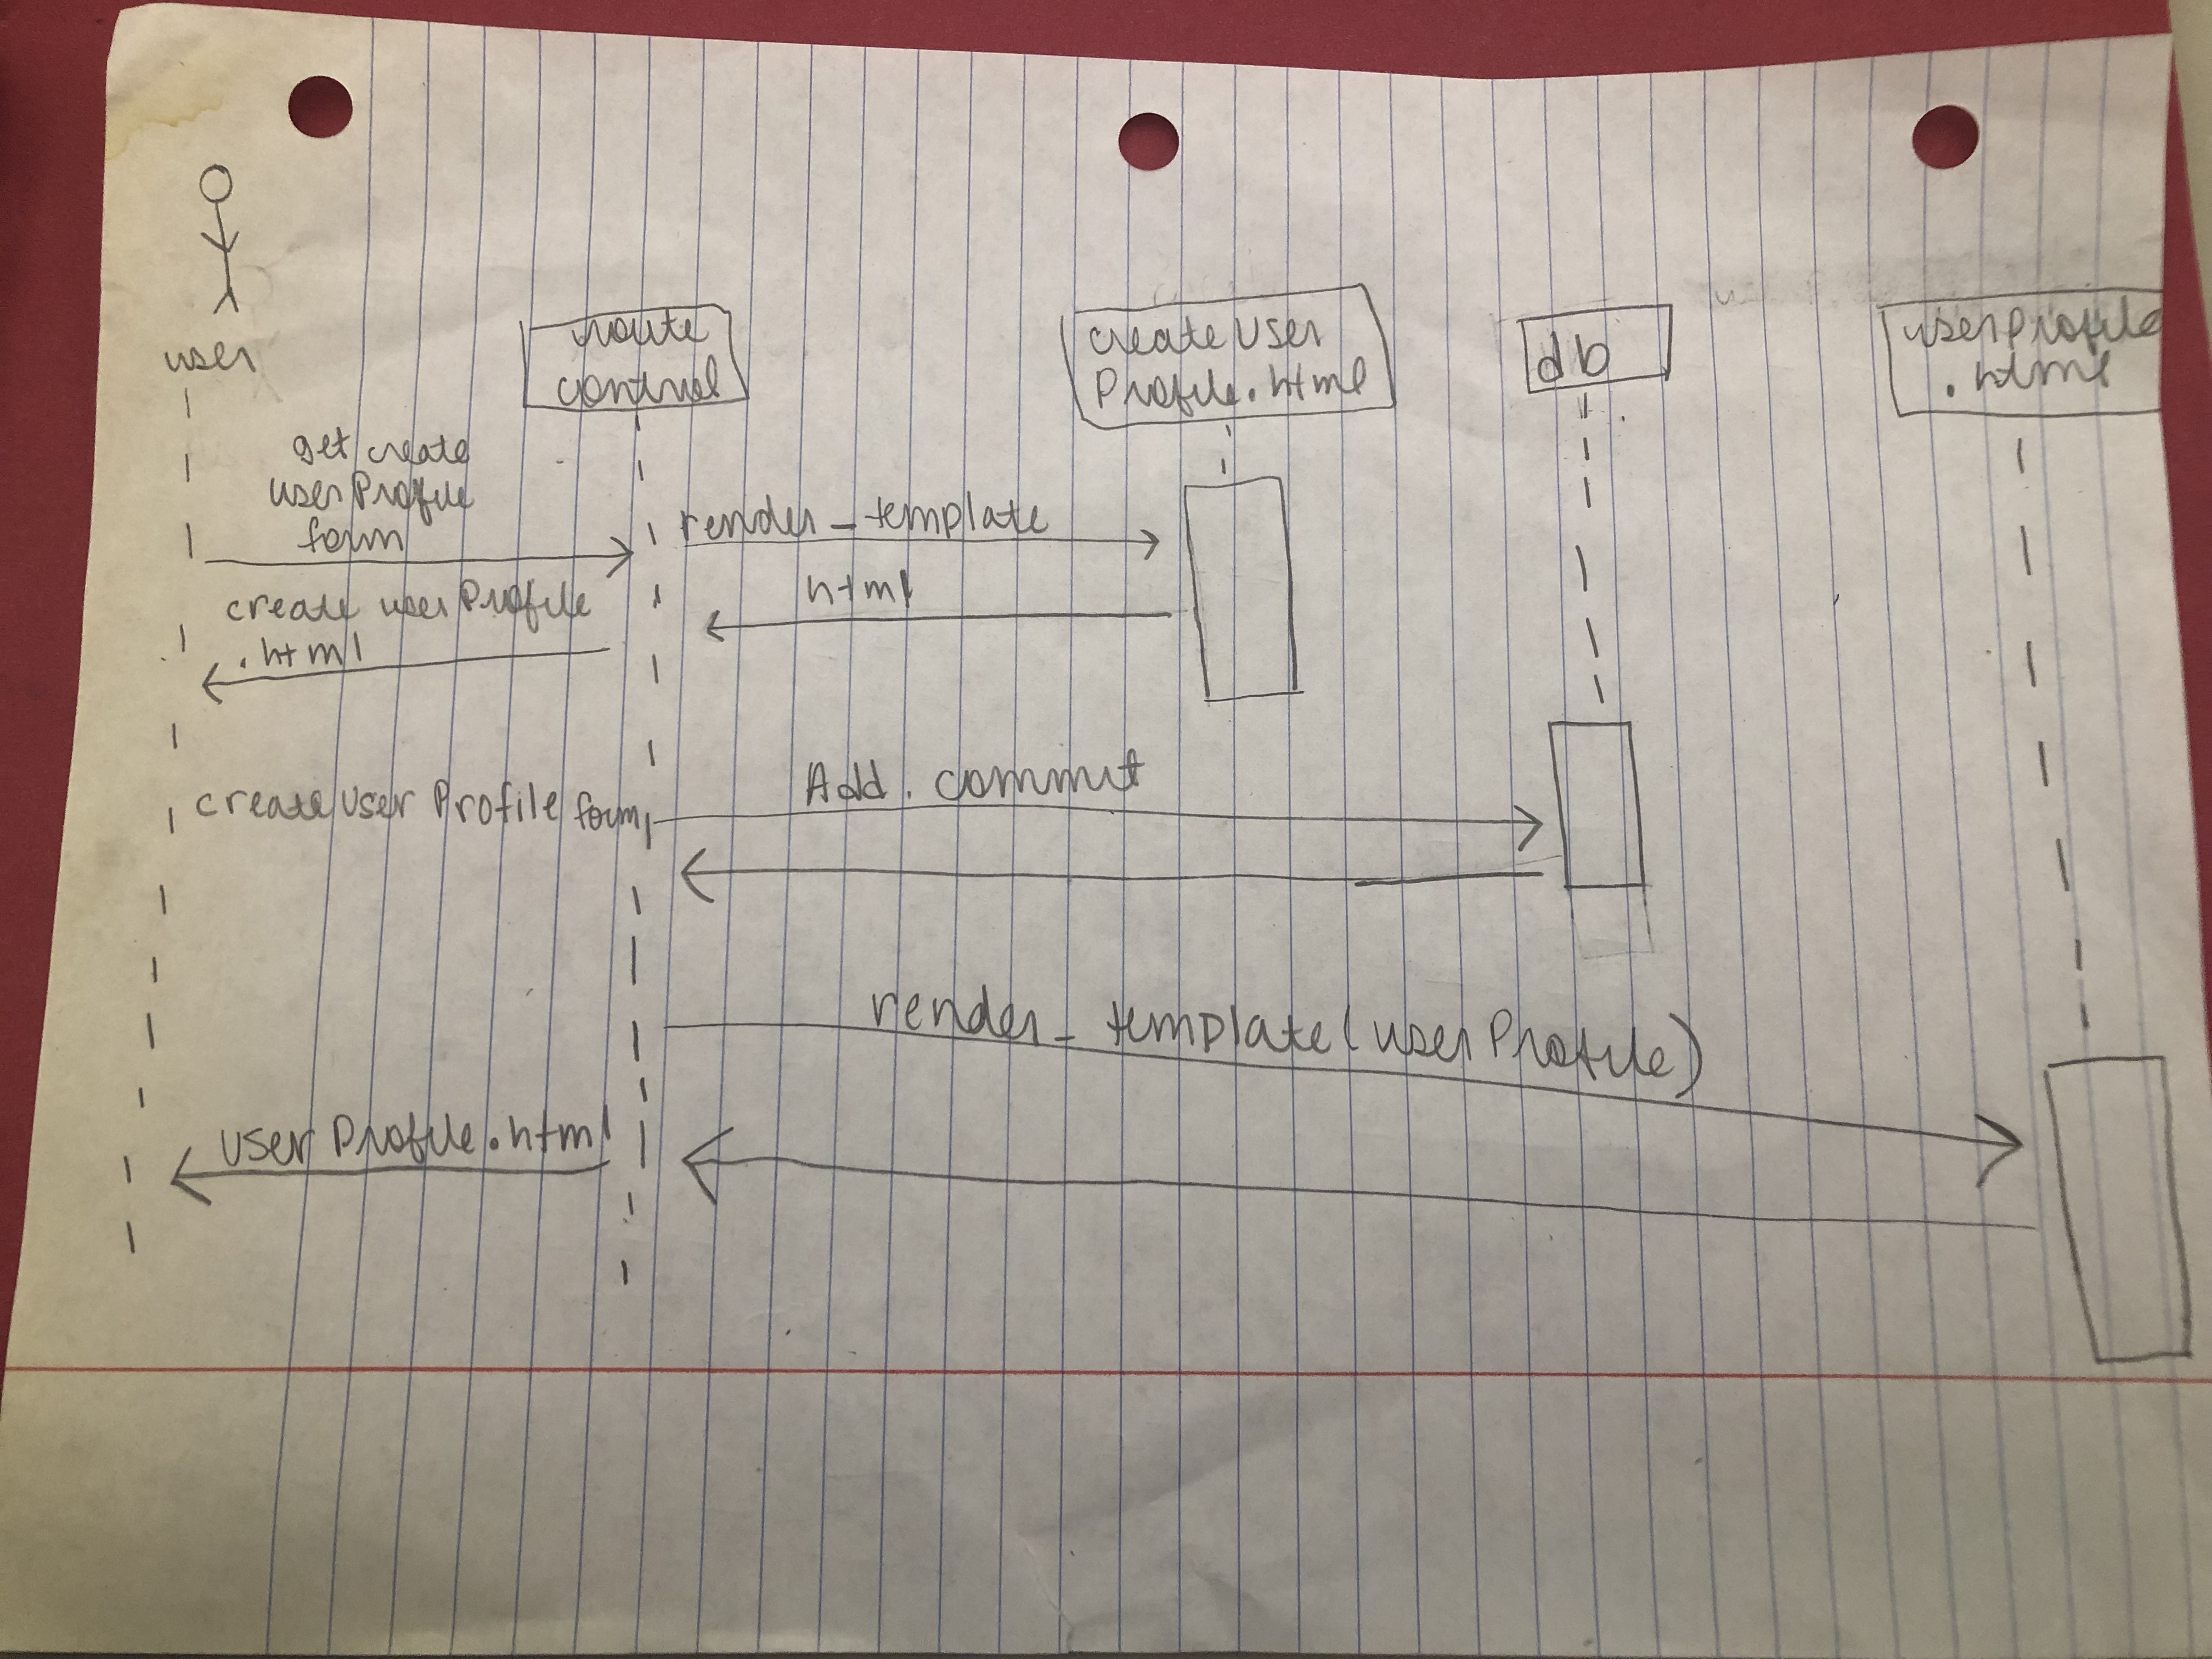 user
route
control
create User
Profile.html
db
userprofile
.html
get create
userProfile
form
render_template
html
create userProfile
.html
Add. commit
create User Profile form
render_template(userProfile)
userProfile.html